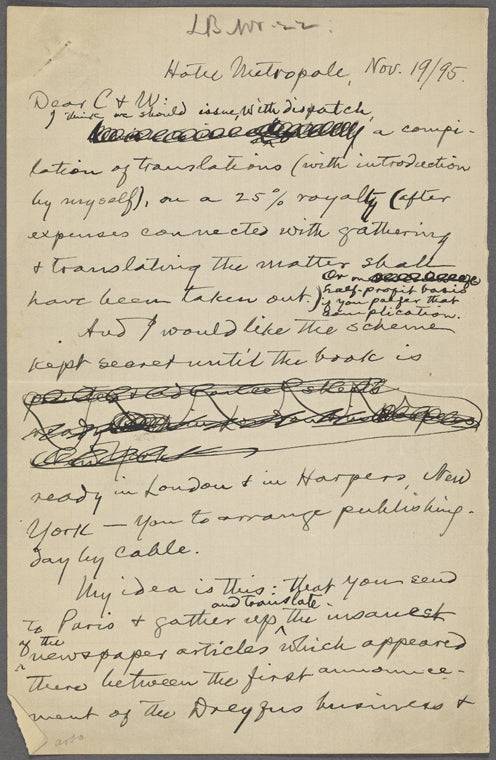 Hotel Metropole, Nov. 19/95.
Dear C & W:
I think we should issue, with dispatch,
a compi-
lation of translations (with introduction
by myself), on a 25% royalty (after
expenses connected with gathering
& translating the matter shall
have been taken out.)
Or on
half-profit basis
if you prefer that
complication.
And I would like the scheme
kept secret until the book is
ready in London & in Harpers, New
York — you to arrange publishing-
day by cable.
My idea is this: that you send
to Paris & gather up the insanest
and translate
of the
newspaper articles ^ which appeared
there between the first announce-
ment of the Dreyfus business &